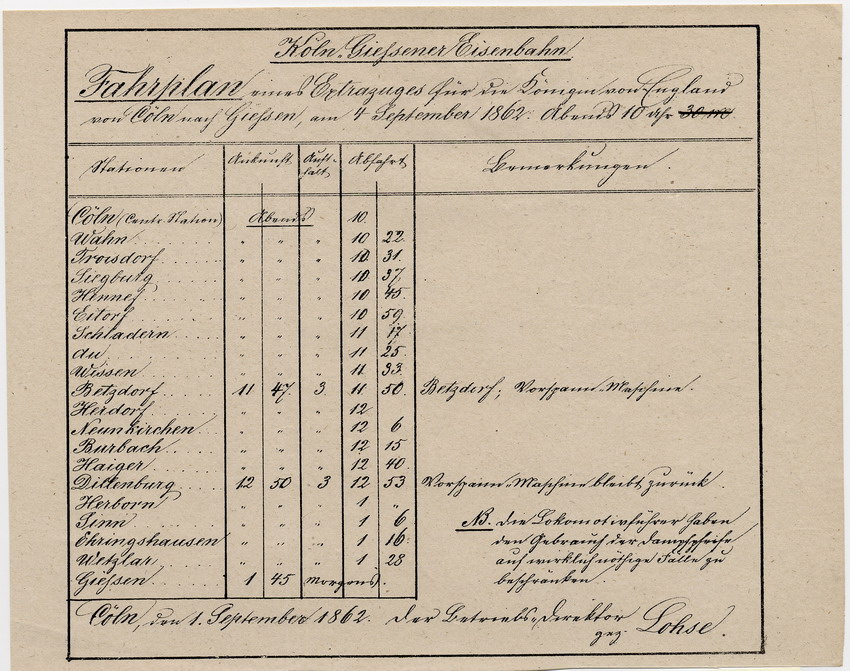 Köln-Giessener Eisenbahn
Fahrplan eines Extrazuges für die Königin von England
von Cöln nach Giessen, am 4 September 1862. Abends 10 Uhr 30 m
Stationen Ankunft Aufthalt Abfahrt Bemerkungen.
Cöln (Centr. Station) Abends 10.
Wahn " " " 10 22.
Troisdorf " " " 10 31.
Siegburg " " " 10 37.
Hennef " " " 10 45.
Eitorf " " " 10 59.
Schladern " " " 11 17
Au " " " 11 25.
Wissen " " " 11 33.
Betzdorf 11 47. 3. 11 50. Betzdorf; Vorspann-Maschine.
Herdorf " " " 12 "
Neunkirchen " " " 12 6
Burbach " " " 12 15
Haiger " " " 12 40.
Dillenburg 12 50 3 12 53 Vorspann-Maschine bleibt zurück.
Herborn " " " 1 "
Sinn " " " 1 6
Ehringshausen " " " 1 16
Wetzlar " " " 1 28
Giessen 1 45 Morgens).
NB. die Lokomotivführer haben
den Gebrauch der Dampfpfeife
auf wirklich nöthige Fälle zu
beschränken.
Cöln, den 1. September 1862. Der Betriebs-Direktor
gez. Lohse.